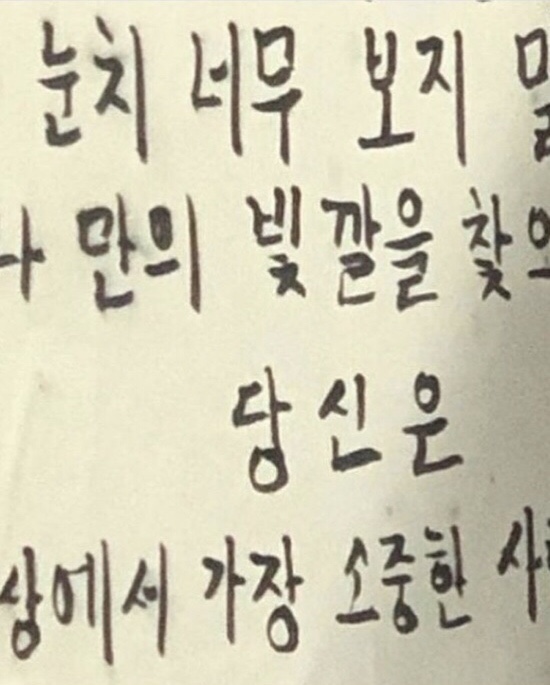 눈치 너무 보지
만의 빛깔을
당신은
가장 소중한